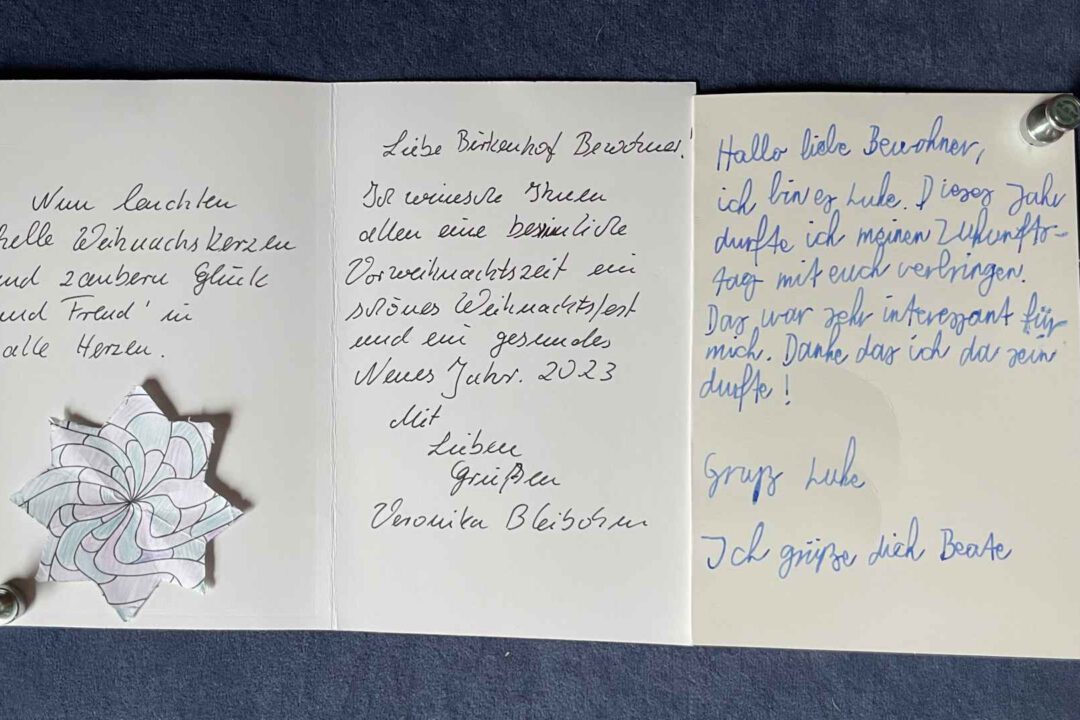 Nun leuchten
helle Weihnachskerzen
und zaubern Glück
und Freud' in
alle Herzen.
Liebe Birkenhof Bewohner!
Ich wünsche Ihnen
allen eine besinnliche
Vorweihnachtszeit ein
schönes Weihnachtsfest
und ein gesundes
Neues Jahr. 2023
Mit
Lieben
Grüßen
Veronika
Hallo liebe Bewohner,
ich bin es Luke. Dieses Jahr
durfte ich meinen Zukunfts-
tag mit euch verbringen.
Das war sehr interessant für
mich. Danke das ich da sein
durfte!
Gruß Luke
Ich grüße dich Beate